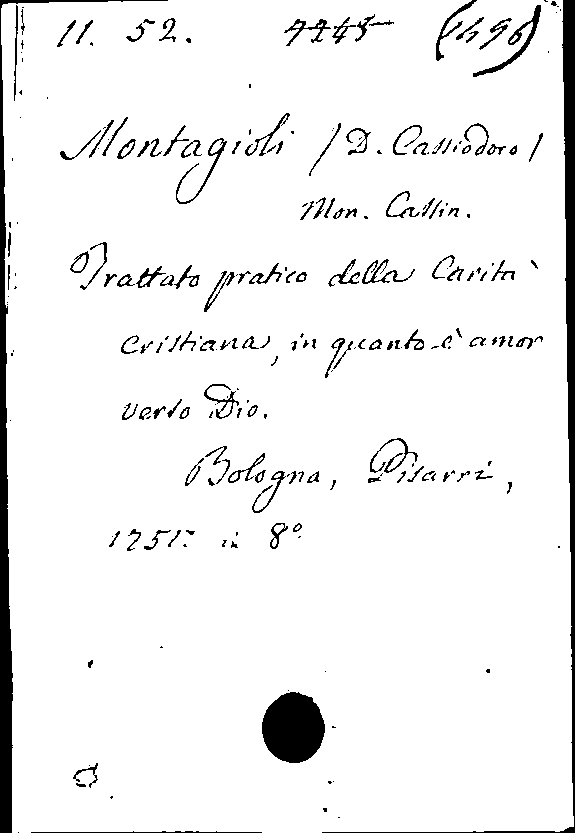 11. 52. 4245 (1496)
Montagioli /D. Cassiodoro/
Mon. Cassin.
Trattato pratico della Carità
cristiana, in quanto è amor
verso Dio.
Bologna, Pisarri,
1751. in 8º